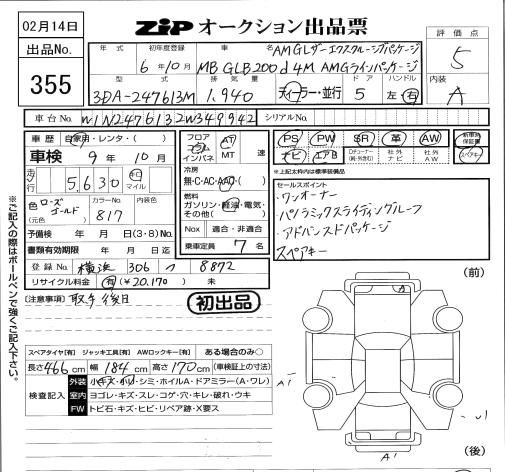 02月14日
ZIP オークション出品票
出品No.
355
評価点
5
内装
A
年式 初年度登録 車名 AMGレザーエクスクルーシブパッケージ
6年10月 MB GLB200d 4M AMGラインパッケージ
型式 排気量 ドア ハンドル
3DA-247613M 1,940 ディーラー・並行 5 左 右
車台No. W1N2476132W349942 シリアルNo.
車歴 自家用・レンタ・( )
車検 9年10月
走行 5,630 キロ マイル
色 ローズゴールド (元色) カラーNo. 817 内装色
予備検 年 月 日(3・8)No.
書類有効期限 年 月 日迄
登録No. 横浜 306 つ 8872
リサイクル料金 有(¥20,170) 未
フロア コラム インパネ AT MT 速
冷房 無・C・AC・AAC・( )
燃料 ガソリン・軽油・電気・その他( )
Nox 適合・非適合
乗車定員 7名
PS PW SR 革 AW 新車時保証書
ナビ エアB Dチューナー(純・外含む) 社外ナビ 社外AW スペアキー
※上記太枠内は標準装備品
セールスポイント
・ワンオーナー
・パノラミックスライディングルーフ
・アドバンスドパッケージ
スペアキー
[注意事項] 取手後日
初出品
(前)
スペアタイヤ[有] ジャッキ工具[有] AWロックキー[有] ある場合のみ○
長さ466cm 幅184cm 高さ170cm (車検証上の寸法)
検査記入
外装 小キズ・小ソ・シミ・ホイルA・ドアミラー(A・ワレ)
室内 ヨゴレ・キズ・スレ・コゲ・穴・キレ・破れ・ウキ
FW トビ石・キズ・ヒビ・リペア跡・X要ス
A1
A1
U1
(後)
※ご記入の際はボールペンで強くご記入下さい。